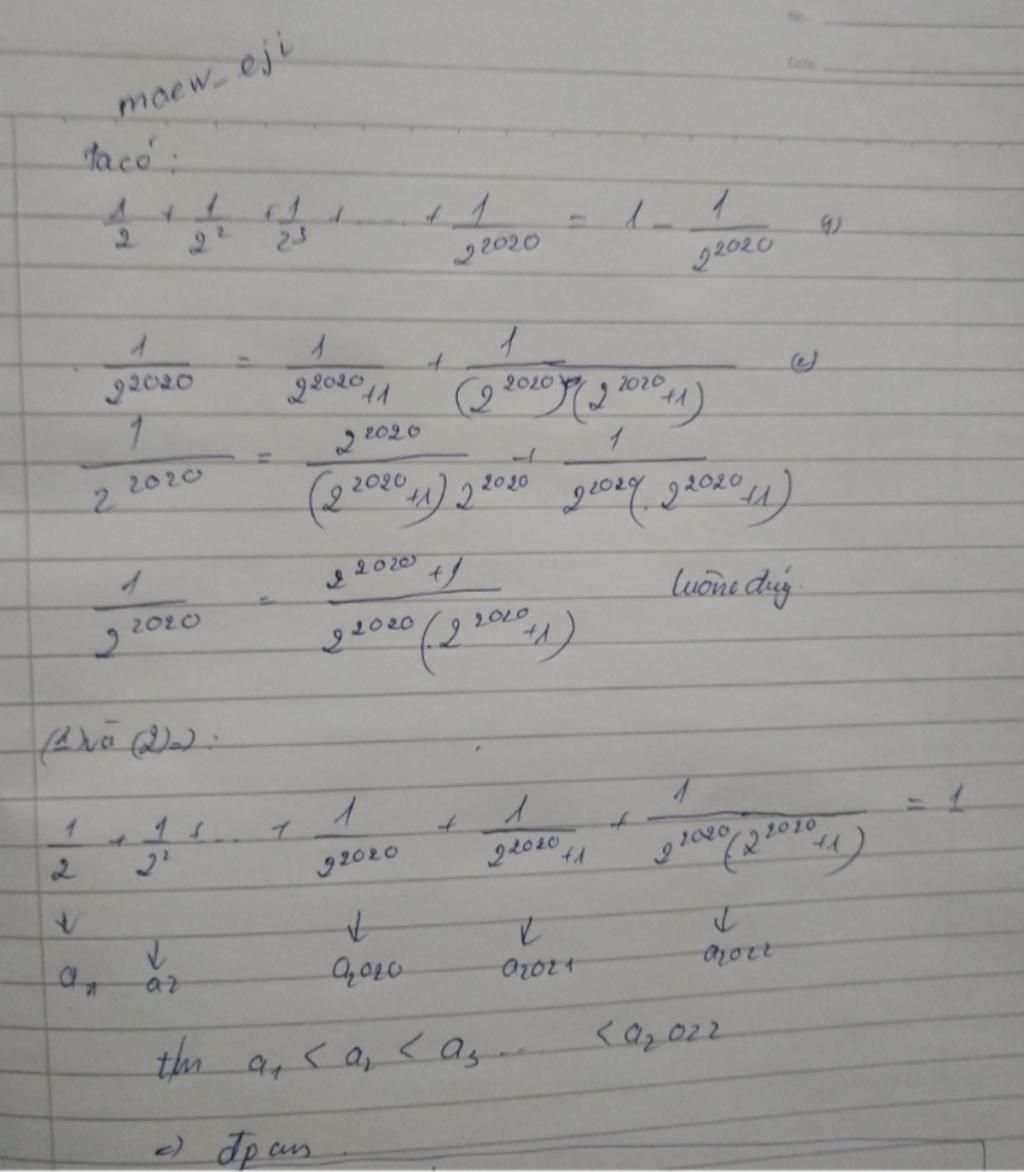 moew_eji
Ta có:
1/2 + 1/2² + 1/2³ + ... + 1/2²⁰²⁰ = 1 - 1/2²⁰²⁰ (1)
1/2²⁰²⁰ = 1/(2²⁰²⁰+1) + 1/((2²⁰²⁰)(2²⁰²⁰+1)) (2)
1/2²⁰²⁰ = 2²⁰²⁰/((2²⁰²⁰+1)2²⁰²⁰) + 1/(2²⁰²⁰(2²⁰²⁰+1))
1/2²⁰²⁰ = (2²⁰²⁰+1)/(2²⁰²⁰(2²⁰²⁰+1)) luôn đúng.
(1) và (2) =) :
1/2 + 1/2² + ... + 1/2²⁰²⁰ + 1/(2²⁰²⁰+1) + 1/(2²⁰²⁰(2²⁰²⁰+1)) = 1
↓ ↓ ↓ ↓ ↓
a₁ a2 a2020 a2021 a2022
t/m a₁ < a₂ < a₃ ... < a2022
=) đpcm